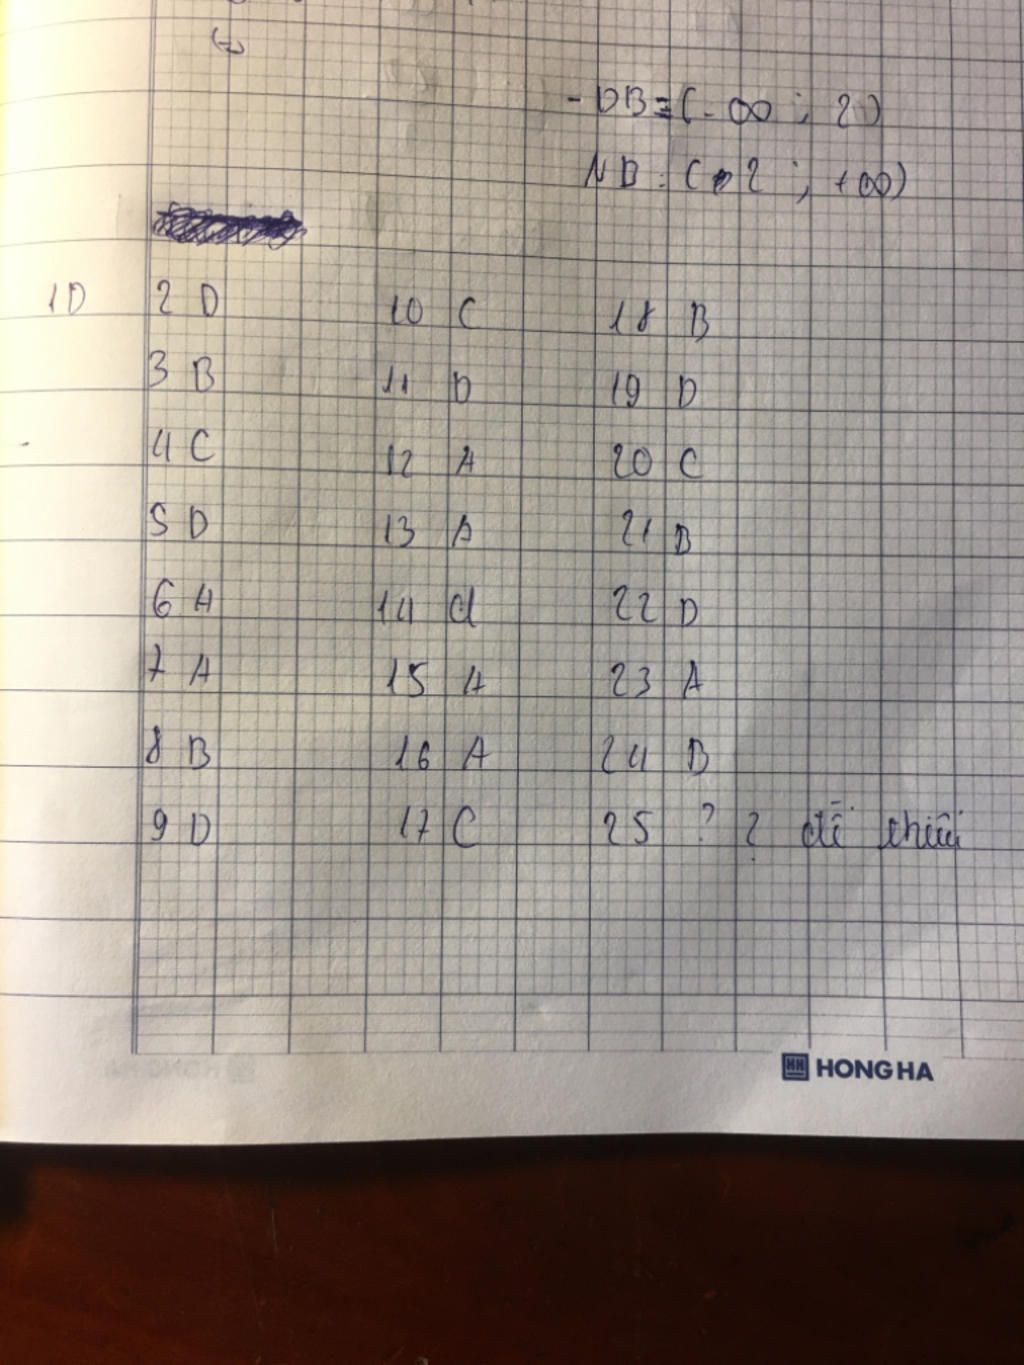 - DB = (- ∞ ; 2)
NB : ( 2 ; +∞)
1D 2 D 10 C 18 B
3 B 11 D 19 D
4 C 12 A 20 C
5 D 13 A 21 B
6 A 14 d 22 D
7 A 15 A 23 A
8 B 16 A 24 B
9 D 17 C 25 ? ? đề thiếu
HH HONG HA